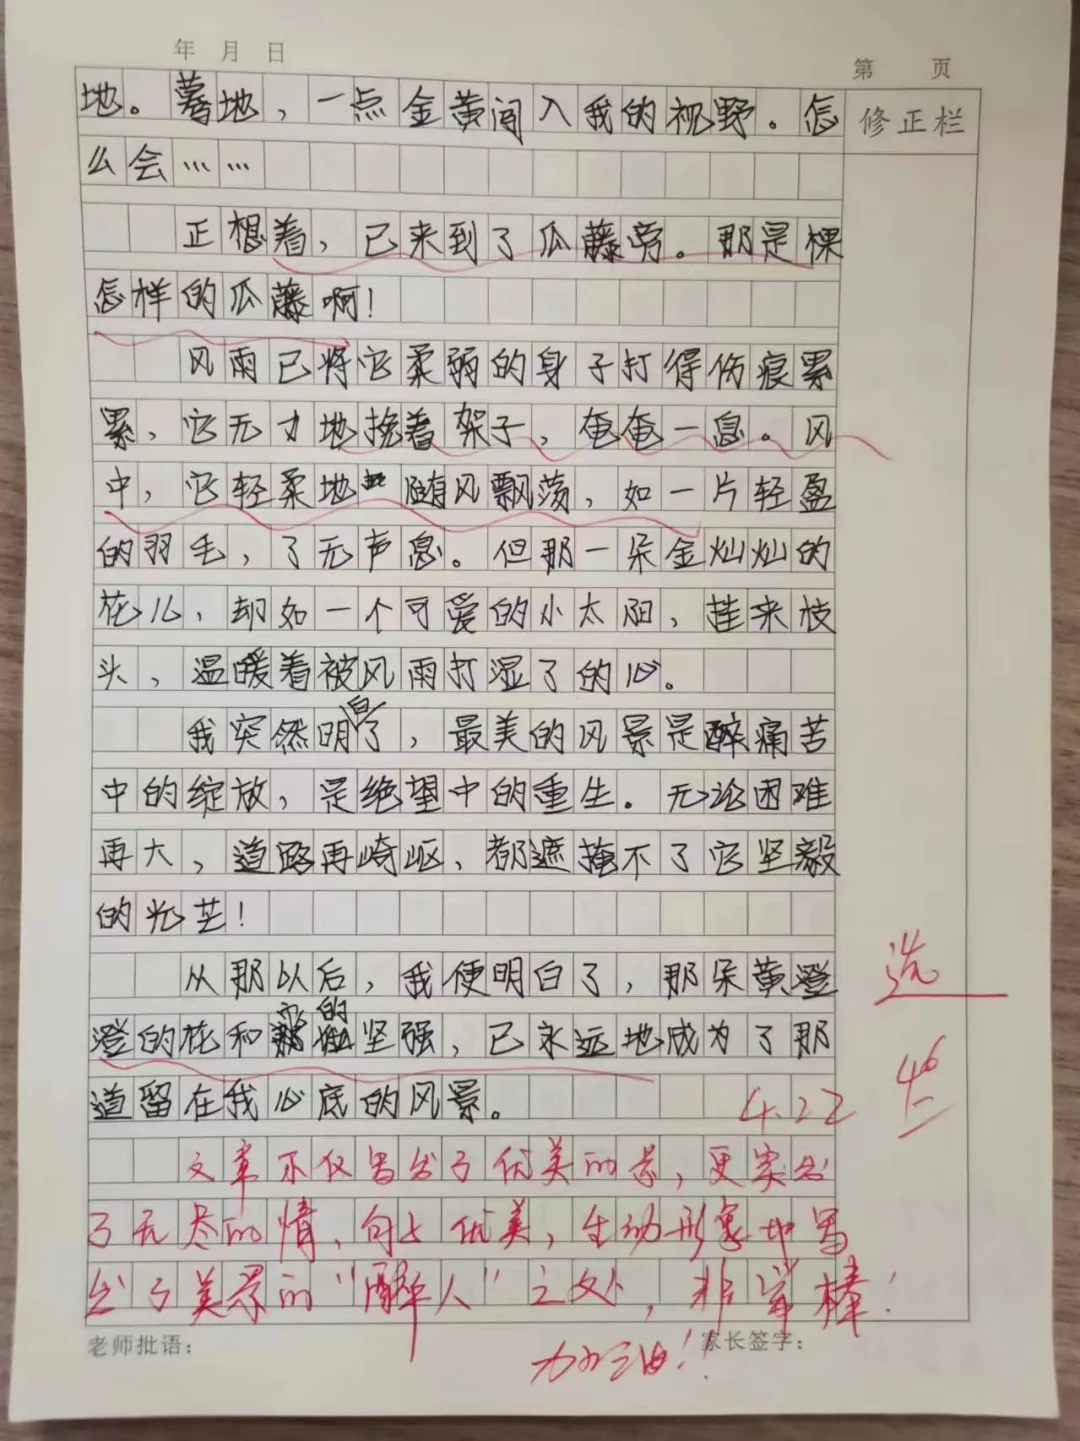 年 月 日
第 页
修正栏
地。蓦地，一点金黄闯入我的视野。怎
么会……
正想着，已来到了瓜藤旁。那是棵
怎样的瓜藤啊！
风雨已将它柔弱的身子打得伤痕累
累，它无力地挽着架子，奄奄一息。风
中，它轻柔地随风飘荡，如一片轻盈
的羽毛，了无声息。但那一朵金灿灿的
花儿，却如一个可爱的小太阳，挂来枝
头，温暖着被风雨打湿了的心。
我突然明白了，最美的风景是醉痛苦
中的绽放，是绝望中的重生。无论困难
再大，道路再崎岖，都遮掩不了它坚毅
的光芒！
从那以后，我便明白了，那朵黄澄
澄的花和它的坚强，已永远地成为了那
道留在我心底的风景。
选
46
4.22
文章不仅写出了优美的景，更突出
了无尽的情，句子优美，生动形象地写
出了美景的“醉人”之处，非常棒！
加油！！
老师批语：
家长签字：